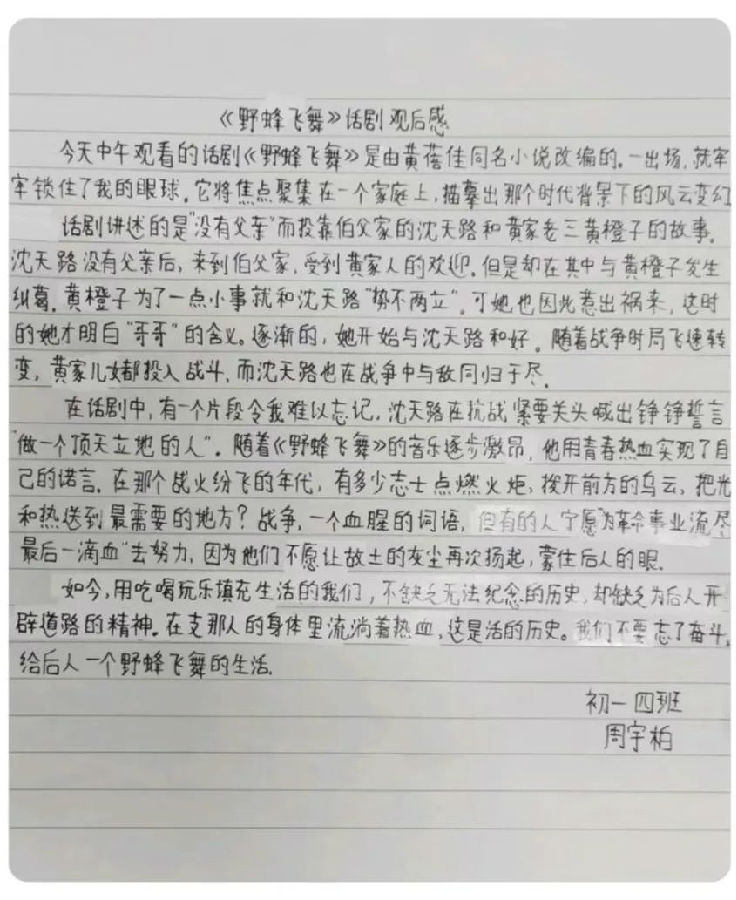 《野蜂飞舞》话剧观后感
今天中午观看的话剧《野蜂飞舞》是由黄蓓佳同名小说改编的.一出场,就牢
牢锁住了我的眼球.它将焦点聚集在一个家庭上,描摹出那个时代背景下的风云变幻
话剧讲述的是"没有父亲"而投靠伯父家的沈天路和黄家老三黄橙子的故事.
沈天路没有父亲后,来到伯父家,受到黄家人的欢迎.但是却在其中与黄橙子发生
纠葛.黄橙子为了一点小事就和沈天路"势不两立".可她也因此惹出祸来,这时
的她才明白"哥哥"的含义。逐渐的,她开始与沈天路和好.随着战争时局飞速转
变,黄家儿女都投入战斗,而沈天路也在战争中与敌同归于尽.
在话剧中,有一个片段令我难以忘记.沈天路在抗战紧要关头喊出铮铮誓言
"做一个顶天立地的人".随着《野蜂飞舞》的音乐逐步激昂,他用青春热血实现了自
己的诺言.在那个战火纷飞的年代,有多少志士点燃火炬,拨开前方的乌云,把光
和热送到最需要的地方?战争,一个血腥的词语,但有的人宁愿"为革命事业流尽
最后一滴血"去努力,因为他们不愿让故土的灰尘再次扬起,蒙住后人的眼.
如今,用吃喝玩乐填充生活的我们,不缺乏无法纪念的历史,却缺乏为后人开
辟道路的精神.在支那人的身体里流淌着热血,这是活的历史。我们不要忘了奋斗,
给后人一个野蜂飞舞的生活.
初一四班
周宇柏